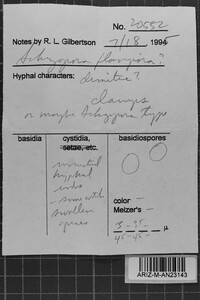 No. 20552
Notes by R. L. Gilbertson 7/18, 1995
Schizopora flavipora?
Hyphal characters: dimitic?
clamps
or maybe Schizopora type
basidia
cystidia, setae, etc.
basidiospores
hyphal
ends
- some with
swollen
apices
color —
Melzer's —
μ
ARIZ-M-AN23143